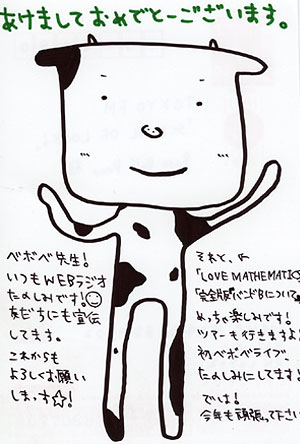 あけましておめでとーございます。
ベボベ先生!
いつもWEBラジオ
たのしみです!
友だちにも宣伝
してます。
これからも
よろしくお願い
しまっす☆!
それと、
「LOVE MATHEMATICS
「完全版"バンドBについて"
めっちゃ楽しみです!
ツアーも行きますよ!
初ベボベライブ、
たのしみにしてます!
では!
今年も頑張って下さい